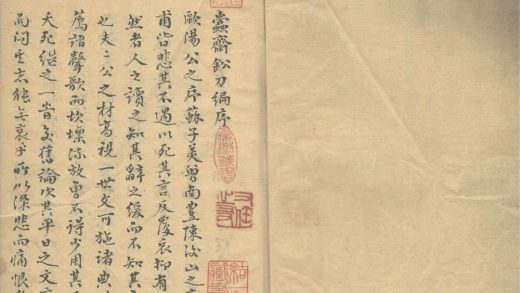 蠹齋鉛刀編序
歐陽公之序蘇子美曾南豐陳後山之
甫皆悲其不遇以死其言反覆哀抑有
然者人之讀之知其辭之緩而不知其
也夫二公之材高視一世文可施諸典
薦諸聲歌而坎壈流放曾不得少用其
夭死繼之一昔交舊論次其平日之文
而問志能無哀乎所以深悲而痛恨